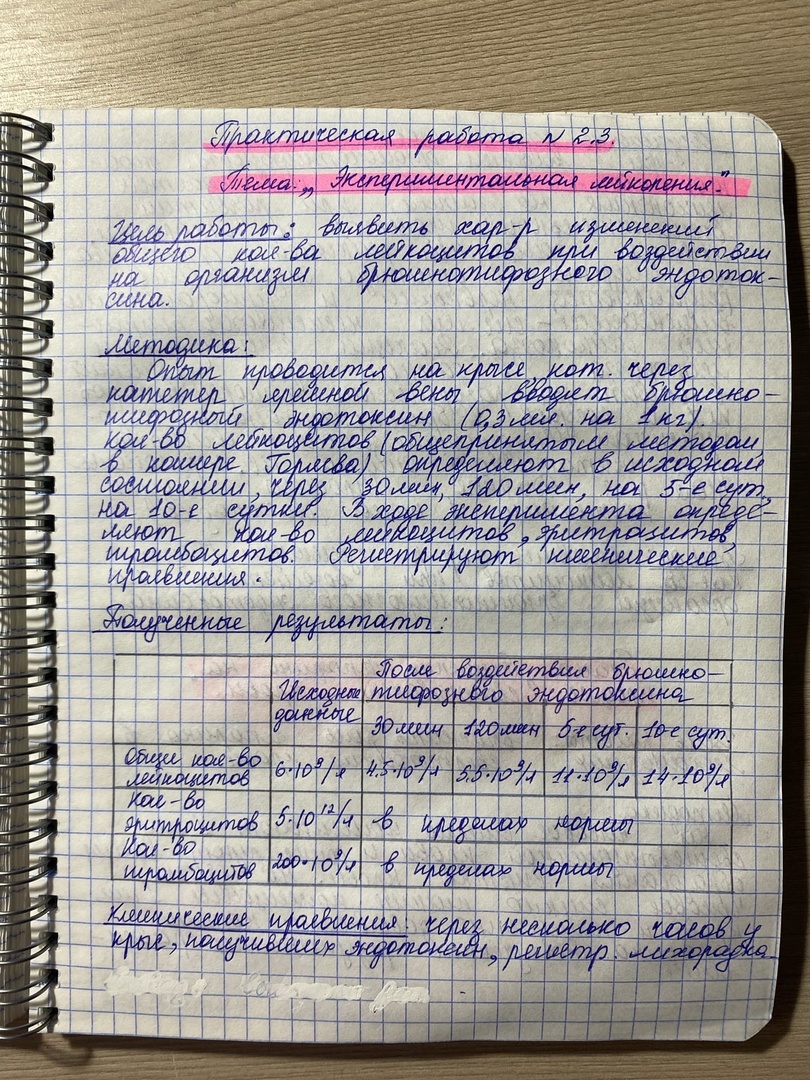 Практическая работа N 2.3.
Тема: „Экспериментальная лейкопения."
Цель работы: выявить хар-р изменений
общего кол-ва лейкоцитов при воздействии
на организм брюшнотифозного эндоток-
сина.
Методика:
Опыт проводится на крысе, кот. через
катетер яремной вены вводят брюшно-
тифозный эндотоксин (0,3 мл. на 1 кг).
Кол-во лейкоцитов (общепринятым методом
в камере Горяева) определяют в исходном
состоянии, через 30 мин, 120 мин, на 5-е сут,
на 10-е сутки. В ходе эксперимента опреде-
ляют кол-во лейкоцитов, эритроцитов,
тромбоцитов. Регистрируют клинические
проявления.
Полученные результаты:
Исходные данные
После воздействия брюшно-
тифозного эндотоксина
30 мин 120 мин 5-е сут. 10-е сут.
Общ. кол-во
лейкоцитов 6·10⁹/л 4.5·10⁹/л 5.5·10⁹/л 11·10⁹/л 14·10⁹/л
Кол-во
эритроцитов 5·10¹²/л в пределах нормы
Кол-во
тромбоцитов 200·10⁹/л в пределах нормы
Клинические проявления: через несколько часов у
крыс, получивших эндотоксин, регистр. лихорадка